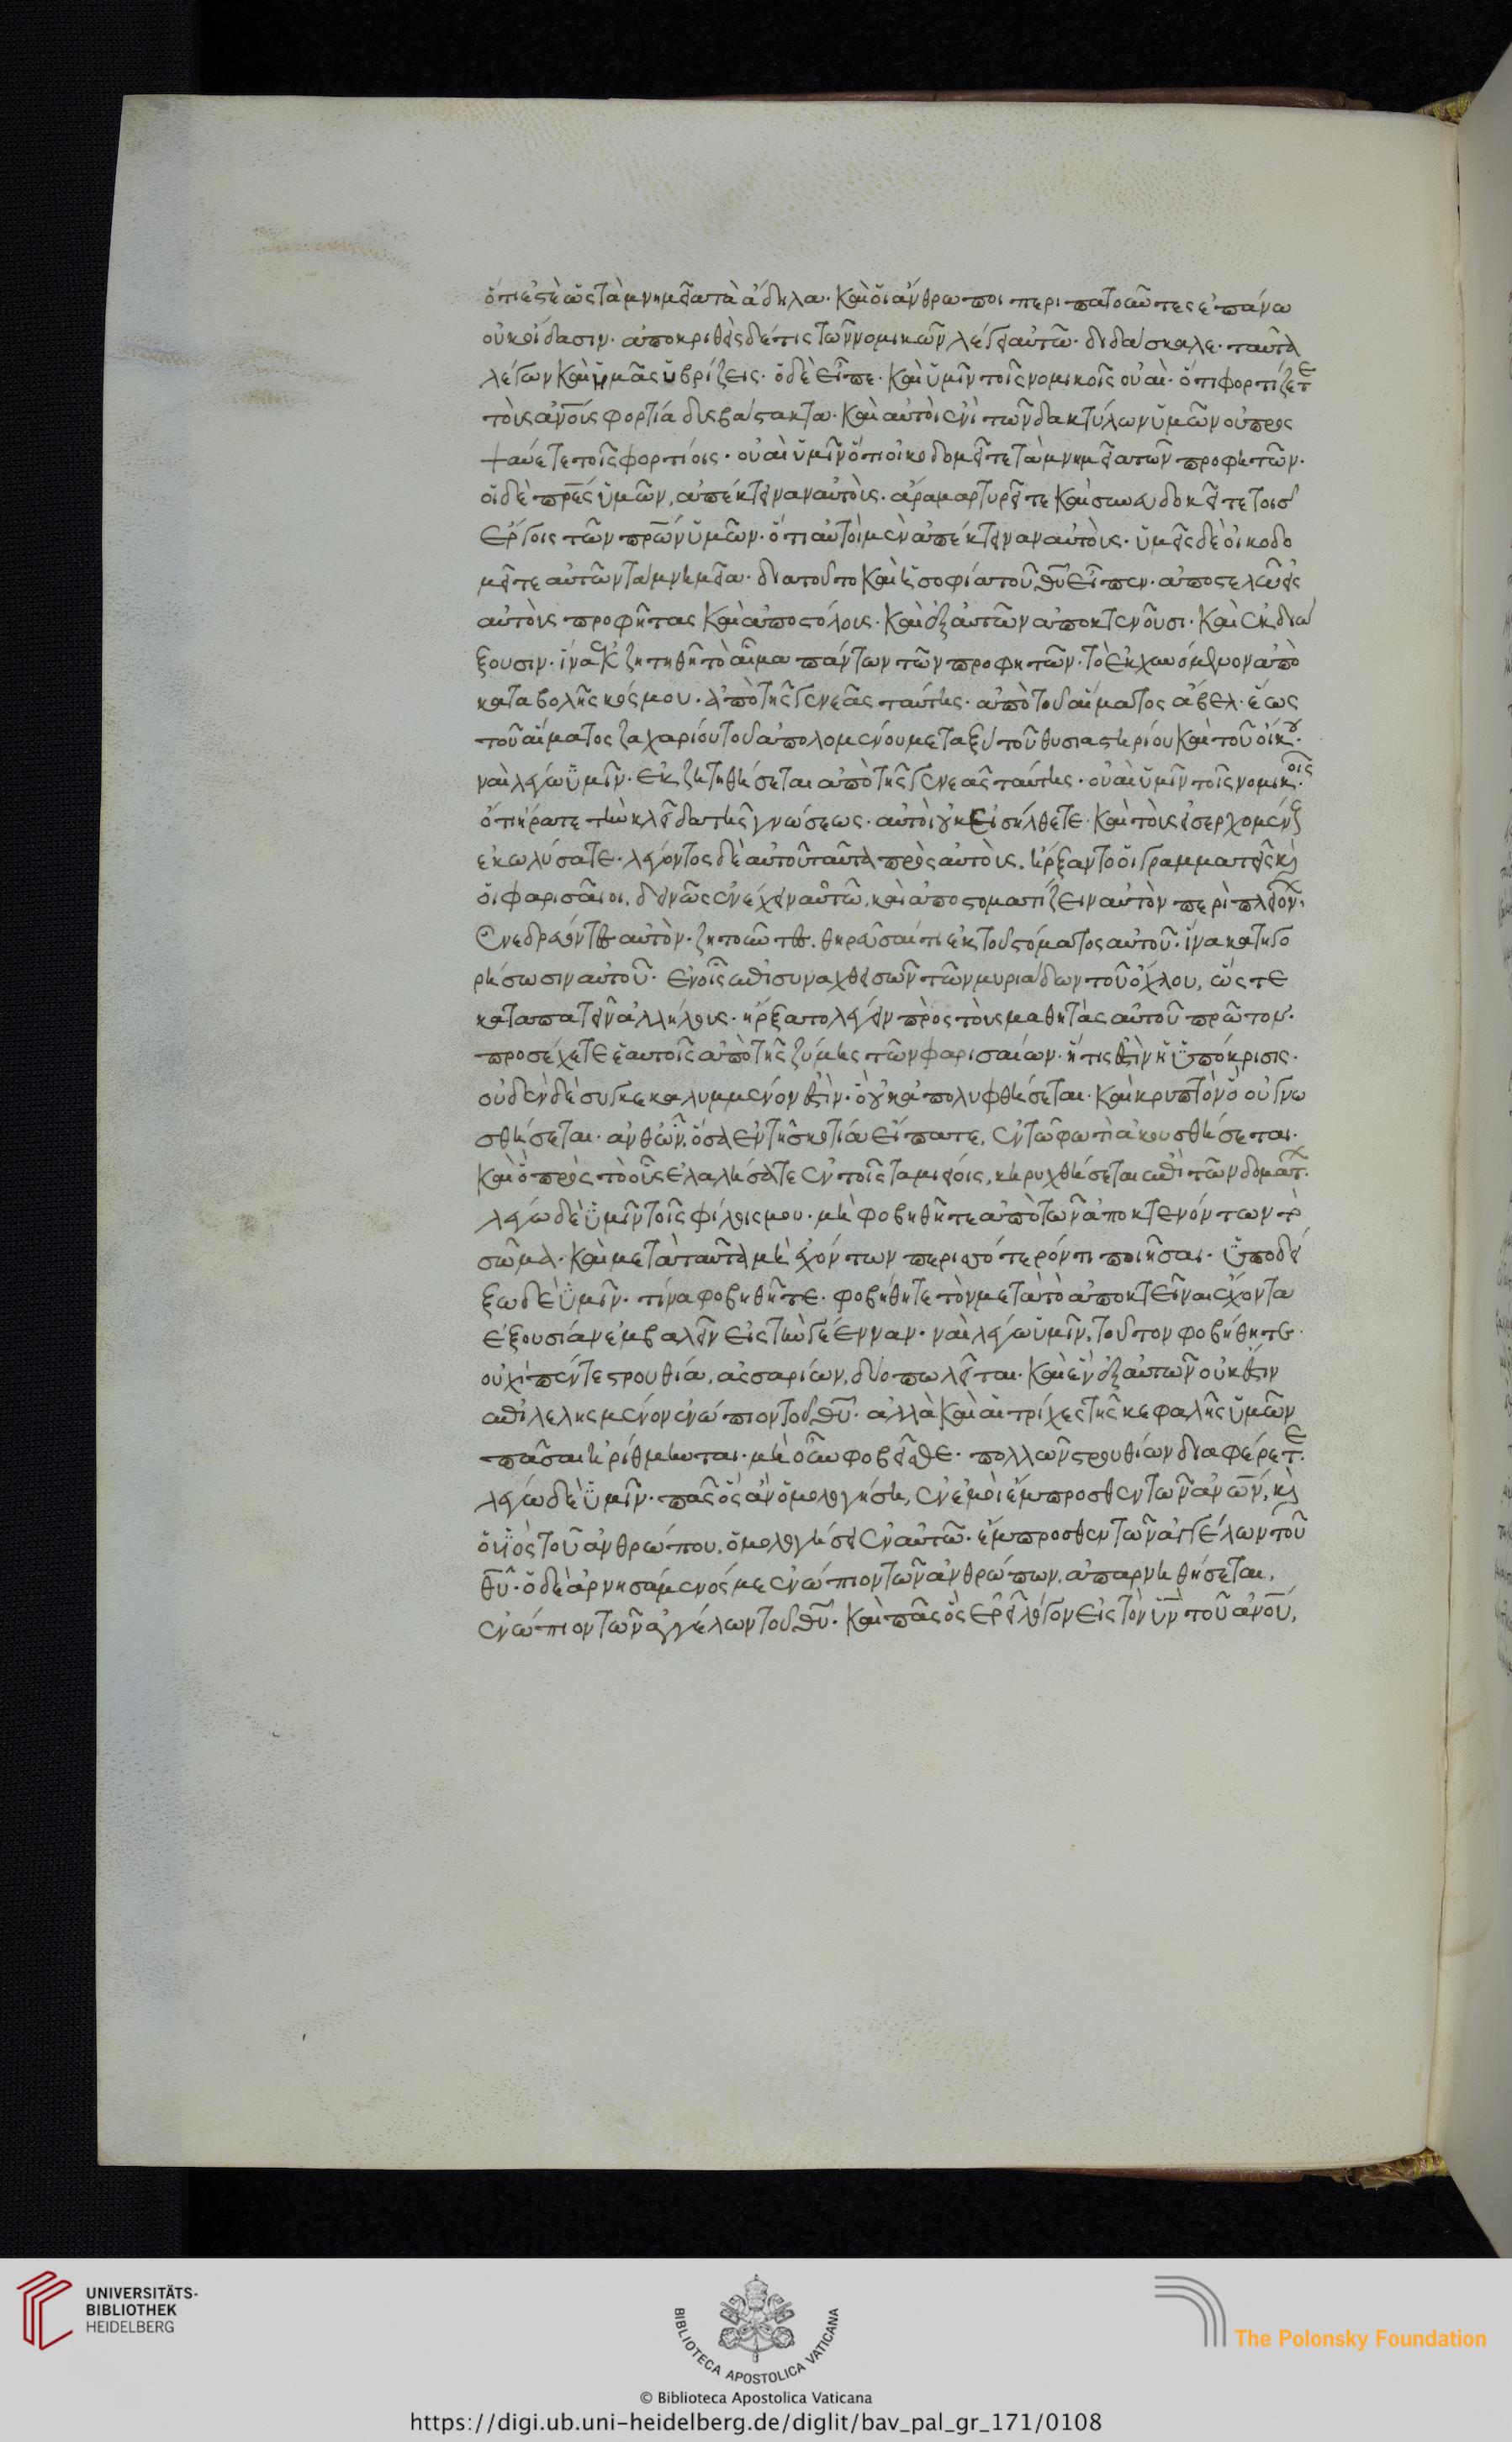 ὅτι ἐστὲ ὡς τὰ μνημεῖα τὰ ἄδηλα· καὶ οἱ ἄνθρωποι περιπατοῦντες ἐπάνω
οὐκ οἴδασιν· ἀποκριθεὶς δέ τις τῶν νομικῶν λέγει αὐτῶ· διδάσκαλε· ταῦτα
λέγων καὶ ἡμᾶς ὑβρίζεις· ὁ δὲ εἶπε· καὶ ὑμῖν τοῖς νομικοῖς οὐαὶ· ὅτι φορτίζετε
τοὺς ἀνοὺς φορτία δυσβάστακτα· καὶ αὐτοὶ ἑνὶ τῶν δακτύλων ὑμῶν οὐ προς
ψαύετε τοῖς φορτίοις· οὐαὶ ὑμῖν ὅτι οἰκοδομεῖτε τὰ μνημεῖα τῶν προφητῶν·
οἱ δὲ πρες ὑμῶν, ἀπέκτειναν αὐτοὺς· ἄρα μαρτυρεῖτε καὶ συνευδοκεῖτε τοῖσ
ἔργοις τῶν πρων ὑμῶν· ὅτι αὐτοὶ μὲν ἀπέκτειναν αὐτοὺς· ὑμεῖς δὲ οἰκοδο
μεῖτε αὐτῶν τὰ μνημεῖα· διατοῦτο καὶ ἡ σοφία τοῦ θυ εἶπεν· ἀποστελῶ εἰς
αὐτοὺς προφήτας καὶ ἀποστόλους· καὶ ἐξ αὐτῶν ἀποκτενοῦσι· καὶ ἐκδιώ
ξουσιν· ἵνα ἐκζητηθῆ τὸ αἷμα πάντων τῶν προφητῶν· τὸ ἐκχυνόμενον ἀπὸ
καταβολῆς κόσμου· ἀπὸ τῆς γενεᾶς ταύτης· ἀπὸ τοῦ αἵματος ἄβελ· ἕως
τοῦ αἵματος ζαχαρίου τοῦ ἀπολομένου μεταξὺ τοῦ θυσιαστηρίου καὶ τοῦ οἴκου·
ναὶ λέγω ὑμῖν· ἐκζητηθήσεται ἀπὸ τῆς γενεᾶς ταύτης· οὐαὶ ὑμῖν τοῖς νομικοῖς·
ὅτι ἤρατε τὴν κλεῖδα τῆς γνώσεως· αὐτοὶ οὐκ εἰσήλθετε· καὶ τοὺς εἰσερχομένους
ἐκωλύσατε· λέγοντος δὲ αὐτοῦ ταῦτα πρὸς αὐτοὺς. ἤρξαντο οἱ γραμματεῖς κὶ
οἱ φαρισαῖοι, δεινῶς ἐνέχειν αὐτῶ, καὶ ἀποστοματίζειν αὐτὸν περὶ πλειόνων·
ἐνεδρεύοντες αὐτὸν· ζητοῦντες· θηρεῦσαί τι ἐκ τοῦ στόματος αὐτοῦ· ἵνα κατηγο
ρήσωσιν αὐτοῦ· ἐν οἷς ἐπισυναχθεισῶν τῶν μυριάδων τοῦ ὄχλου, ὥστε
καταπατεῖν ἀλλήλους· ἤρξατο λέγειν πρὸς τοὺς μαθητὰς αὐτοῦ πρῶτον·
προσέχετε ἑαυτοῖς ἀπὸ τῆς ζύμης τῶν φαρισαίων· ἥτις ἐστὶν ἡ ὑπόκρισις·
οὐδὲν δὲ συγκεκαλυμμένον ἐστὶν· ὃ οὐκ ἀποκαλυφθήσεται· καὶ κρυπτὸν ὃ οὐ γνω
σθήσεται· ἀνθ ὧν, ὅσα ἐν τῆ σκοτία εἴπατε, ἐν τῶ φωτὶ ἀκουσθήσεται·
καὶ ὃ πρὸς τὸ οὖς ἐλαλήσατε ἐν τοῖς ταμείοις, κηρυχθήσεται ἐπὶ τῶν δωμάτων·
λέγω δὲ ὑμῖν τοῖς φίλοις μου· μὴ φοβηθῆτε ἀπὸ τῶν ἀποκτενόντων τὸ
σῶμα· καὶ μετὰ ταῦτα μὴ ἐχόντων περισσότερόν τι ποιῆσαι· ὑποδεί
ξω δὲ ὑμῖν· τίνα φοβηθῆτε· φοβήθητε τὸν μετὰ τὸ ἀποκτεῖναι ἔχοντα
ἐξουσίαν ἐμβαλεῖν εἰς τὴν γέενναν· ναὶ λέγω ὑμῖν, τοῦτον φοβήθητε·
οὐχὶ πέντε στρουθία, ἀσσαρίων, δύο πωλεῖται· καὶ ἓν ἐξ αὐτῶν οὐκ ἔστιν
ἐπιλελησμένον ἐνώπιον τοῦ θυ· ἀλλὰ καὶ αἱ τρίχες τῆς κεφαλῆς ὑμῶν
πᾶσαι ἠρίθμηνται· μὴ οὖν φοβεῖσθε· πολλῶν στρουθίων διαφέρετε·
λέγω δὲ ὑμῖν· πᾶς ὃς ἂν ὁμολογήση, ἐν ἐμοὶ ἔμπροσθεν τῶν ἀνων, κὶ
ὁ υἱὸς τοῦ ἀνθρώπου, ὁμολογήσει ἐν αὐτῶ· ἔμπροσθεν τῶν ἀγγέλων τοῦ
θυ· ὁ δὲ ἀρνησάμενός με ἐνώπιον τῶν ἀνθρώπων, ἀπαρνηθήσεται,
ἐνώπιον τῶν ἀγγέλων τοῦ θυ· καὶ πᾶς ὃς ἐρεῖ λόγον εἰς τὸν υν τοῦ ἀνου,
UNIVERSITÄTS-
BIBLIOTHEK
HEIDELBERG
BIBLIOTECA APOSTOLICA VATICANA
The Polonsky Foundation
© Biblioteca Apostolica Vaticana
https://digi.ub.uni-heidelberg.de/diglit/bav_pal_gr_171/0108